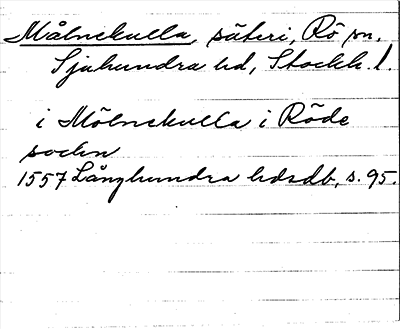 Målnekulla, säteri, Rö sn.
Sjuhundra hd, Stockh. l.
i Mölnekulla i Röde
sochn
1557 Långhundra hdsdb, s. 95.